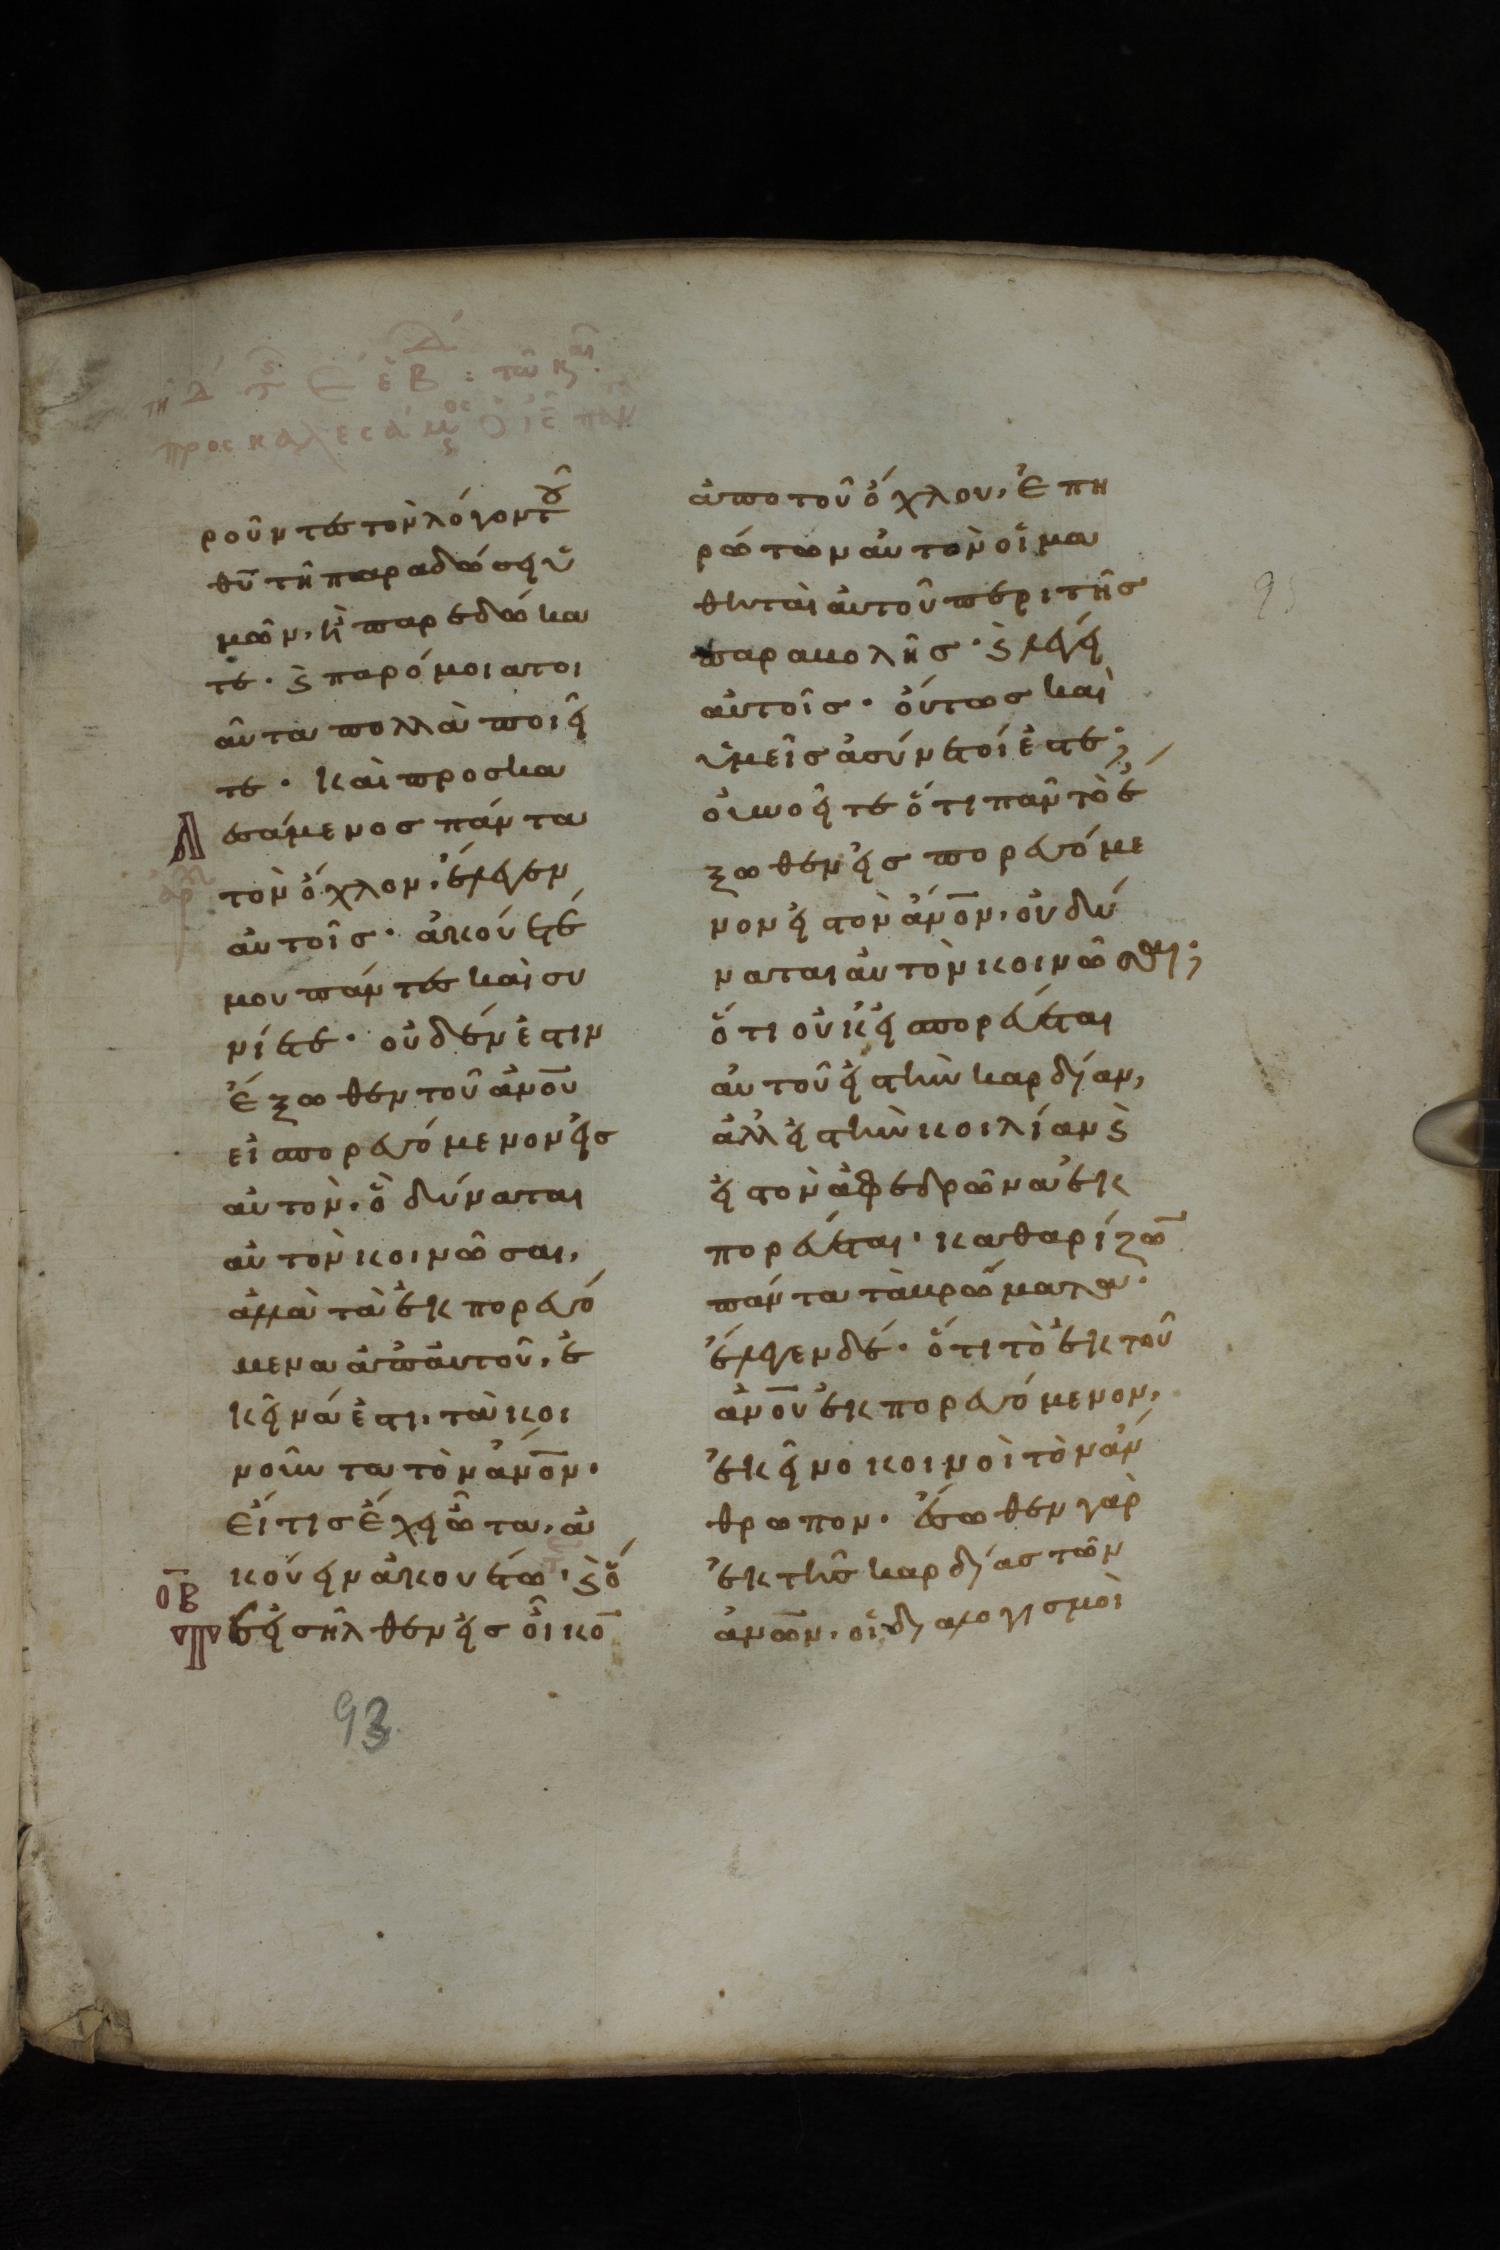 τῇ Δ τ ε β : τῶν
προσκαλεσάμενος ὁ ις πάν
ροῦντες τὸν λόγον τοῦ
θυ τῆ παραδώσει ὑ
μῶν, ἣ παρεδώκα
τε · ϗ παρόμοια τοι
αῦτα πολλὰ ποιεῖ
τε · καὶ προσκα
λεσάμενος πάντα
τὸν ὄχλον, ἔλεγεν
αὐτοῖς · ἀκούετέ
μου πάντες καὶ συ
νίετε · οὐδέν ἐστιν
ἔξωθεν τοῦ ανου
εἰσπορευόμενον εἰς
αὐτὸν, ὃ δύναται
αὐτὸν κοινῶσαι,
ἀλλὰ τὰ ἐκπορευό
μενα ἀπ αὐτοῦ, ἐ
κεῖνά ἐστι, τὰ κοι
νοῦντα τὸν ανον ·
Εἴ τις ἔχει ὦτα, ἀ
κούειν ἀκουέτω · ϗ ὅ
τε εἰσῆλθεν εἰς οἶκο̄
ΟΒ
93
ἀπο τοῦ ὄχλου, Ἐπη
ρώτων αὐτὸν οἱ μα
θηταὶ αὐτοῦ περι τῆς
παραβολῆς · ϗ λέγει
αὐτοῖς · οὕτως καὶ
ὑμεῖς ἀσύνετοί ἐστε;
οὐ νοεῖτε ὅτι πᾶν τὸ ἔ
ξωθεν εἰσπορευόμε
νον εἰς τὸν ανον, οὐ δύ
ναται αὐτὸν κοινῶσαι;
ὅτι οὐκ εἰσπορεύεται
αὐτοῦ εἰς τὴν καρδίαν,
ἀλλ εἰς τὴν κοιλίαν ϗ
εἰς τὸν ἀφεδρῶνα ἐκ
πορεύεται · καθαρίζω̄
πάντα τὰ βρώματα ·
ἔλεγεν δέ · ὅτι τὸ ἐκ τοῦ
ανου ἐκπορευόμενον,
ἐκεῖνο κοινοὶ τὸν ἄν
θρωπον · ἔσωθεν γὰρ
ἐκ τῆς καρδίας τῶν
ανων, οἱ διαλογισμοὶ
95